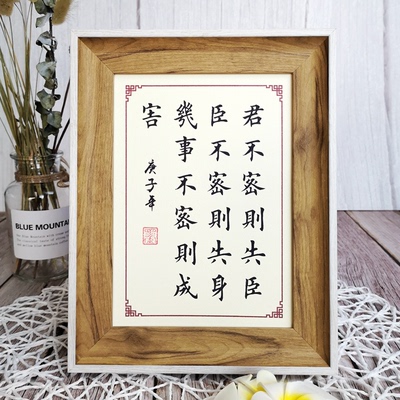 君不密則失臣
臣不密則失身
幾事不密則成
害
庚子年
BLUE MOUNTAIN